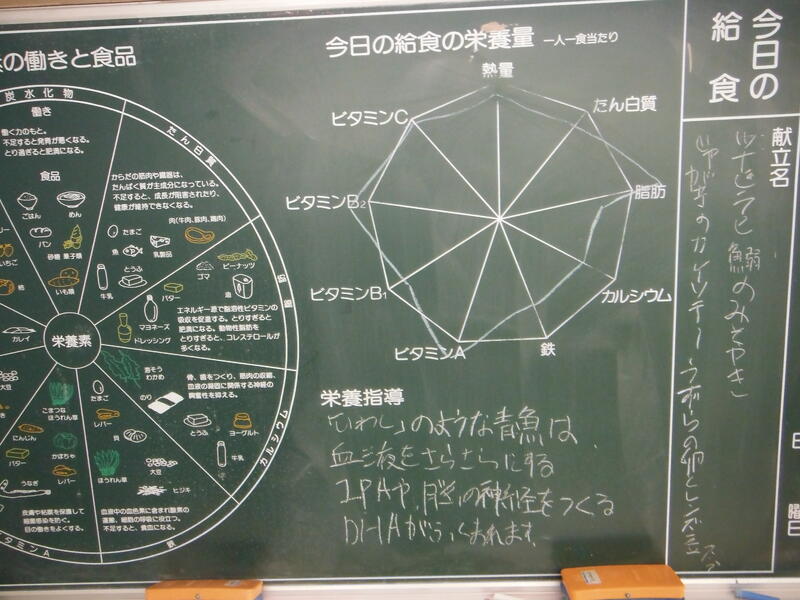 の働きと食品
炭水化物
働き
働く力のもと。
不足すると発育が悪くなる。
とり過ぎると肥満になる。
食品
ごはん
めん
パン
砂糖
菓子類
いちご
いも類
たん白質
からだの筋肉や臓器は、
たんぱく質が主成分になっている。
不足すると、成長が阻害されたり、
健康が維持できなくなる。
肉(牛肉、豚肉、鶏肉)
たまご
魚
乳製品
とうふ
牛乳
脂肪
ピーナッツ
ゴマ
油
バター
マヨネーズ
ドレッシング
エネルギー源で脂溶性ビタミンの
吸収を促進する。とりすぎると
肥満になる。動物性脂肪を
とりすぎると、コレステロールが
多くなる。
栄養素
カルシウム
骨、歯をつくり、筋肉の収縮、
血液の凝固に関係する神経の
興奮性を抑える。
海そう
わかめ
のり
とうふ
ヨーグルト
牛乳
鉄
たまご
レバー
貝
大豆
ほうれん草
ヒジキ
血液中の血色素に含まれ酸素の
運搬、細胞の呼吸に役立つ。
不足すると、貧血になる。
ビタミンA
こまつな
ほうれん草
にんじん
かぼちゃ
バター
レバー
うなぎ
皮膚や粘膜を保護して
細菌感染を防ぐ。
目の働きをよくする。
カレイ
大豆
今日の給食の栄養量 一人一食当たり
熱量
たん白質
脂肪
カルシウム
鉄
ビタミンA
ビタミンB1
ビタミンB2
ビタミンC
栄養指導
「いわし」のような青魚は、
血液をさらさらにする
IPAや、脳の神経をつくる
DHAがふくまれます。
今日の
給食
献立名
鰯のみそやき
うずらの卵とレンズ豆
曜日